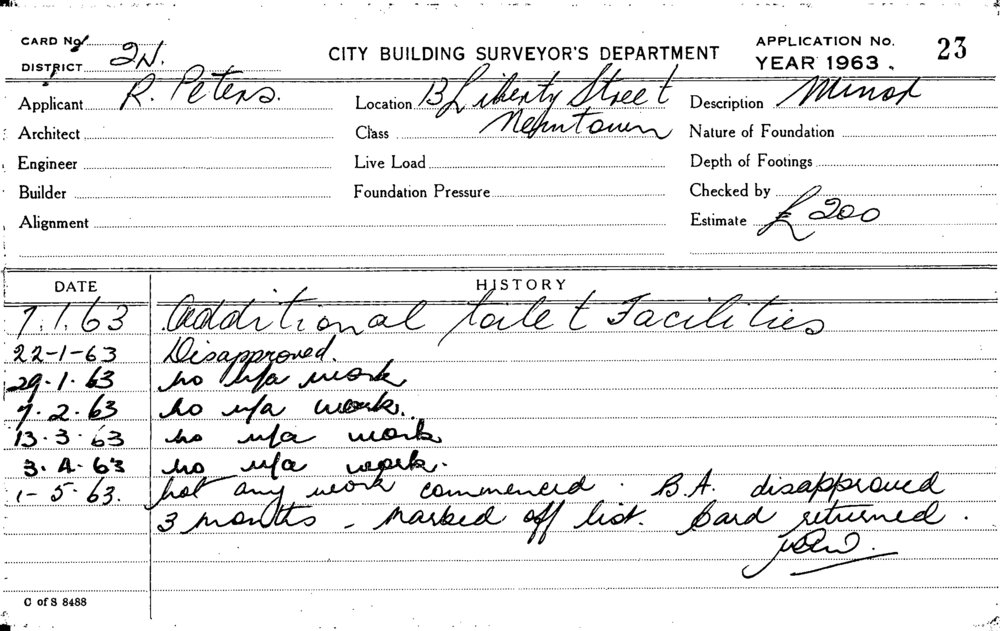 CARD No.
DISTRICT 2N.
CITY BUILDING SURVEYOR'S DEPARTMENT
APPLICATION No. 23
YEAR 1963.
Applicant R. Peters.
Location 13 Liberty Street
Description Minor
Architect
Class Newtown
Nature of Foundation
Engineer
Live Load
Depth of Footings
Builder
Foundation Pressure
Checked by
Alignment
Estimate £200
DATE HISTORY
7.1.63 Additional toilet Facilities
22-1-63 Disapproved.
29.1.63 no u/a work
7.2.63 no u/a work.
13.3.63 no u/a work
3.4.63 no u/a work.
1-5.63. Not any work commenced. B.A. disapproved
3 months - marked off list. Card returned.
C of S 8488